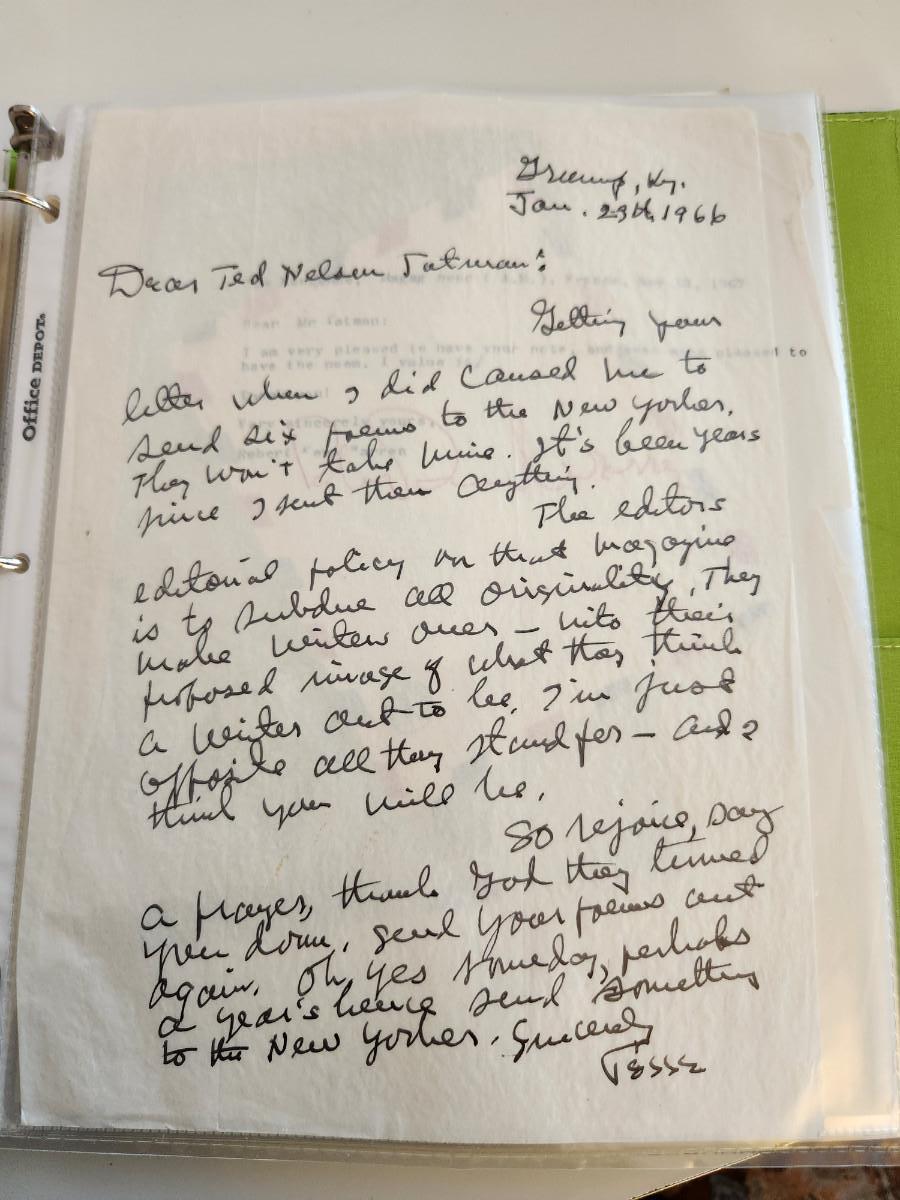 Office DEPOT.
Greenup, Ky.
Jan. 29th, 1966
Dear Ted Nelson Tatman:
Getting your
letter when I did caused me to
send six poems to the New Yorker.
They won't take mine. It's been years
since I sent them anything.
The editors
editorial policy on that magazine
is to subdue all originality. They
make writers over – into their
proposed image of what they think
a writer out to be. I'm just
opposite all they stand for – and I
think you will be.
So rejoice, say
a prayer, thank God they turned
you down. Send your poems out
again. Oh, yes someday, perhaps
a year's hence send something
to the New Yorker. Sincerely
Jesse
Dear Mr Tatman:
I am very pleased to have your note, pleased to
have the poem. I value